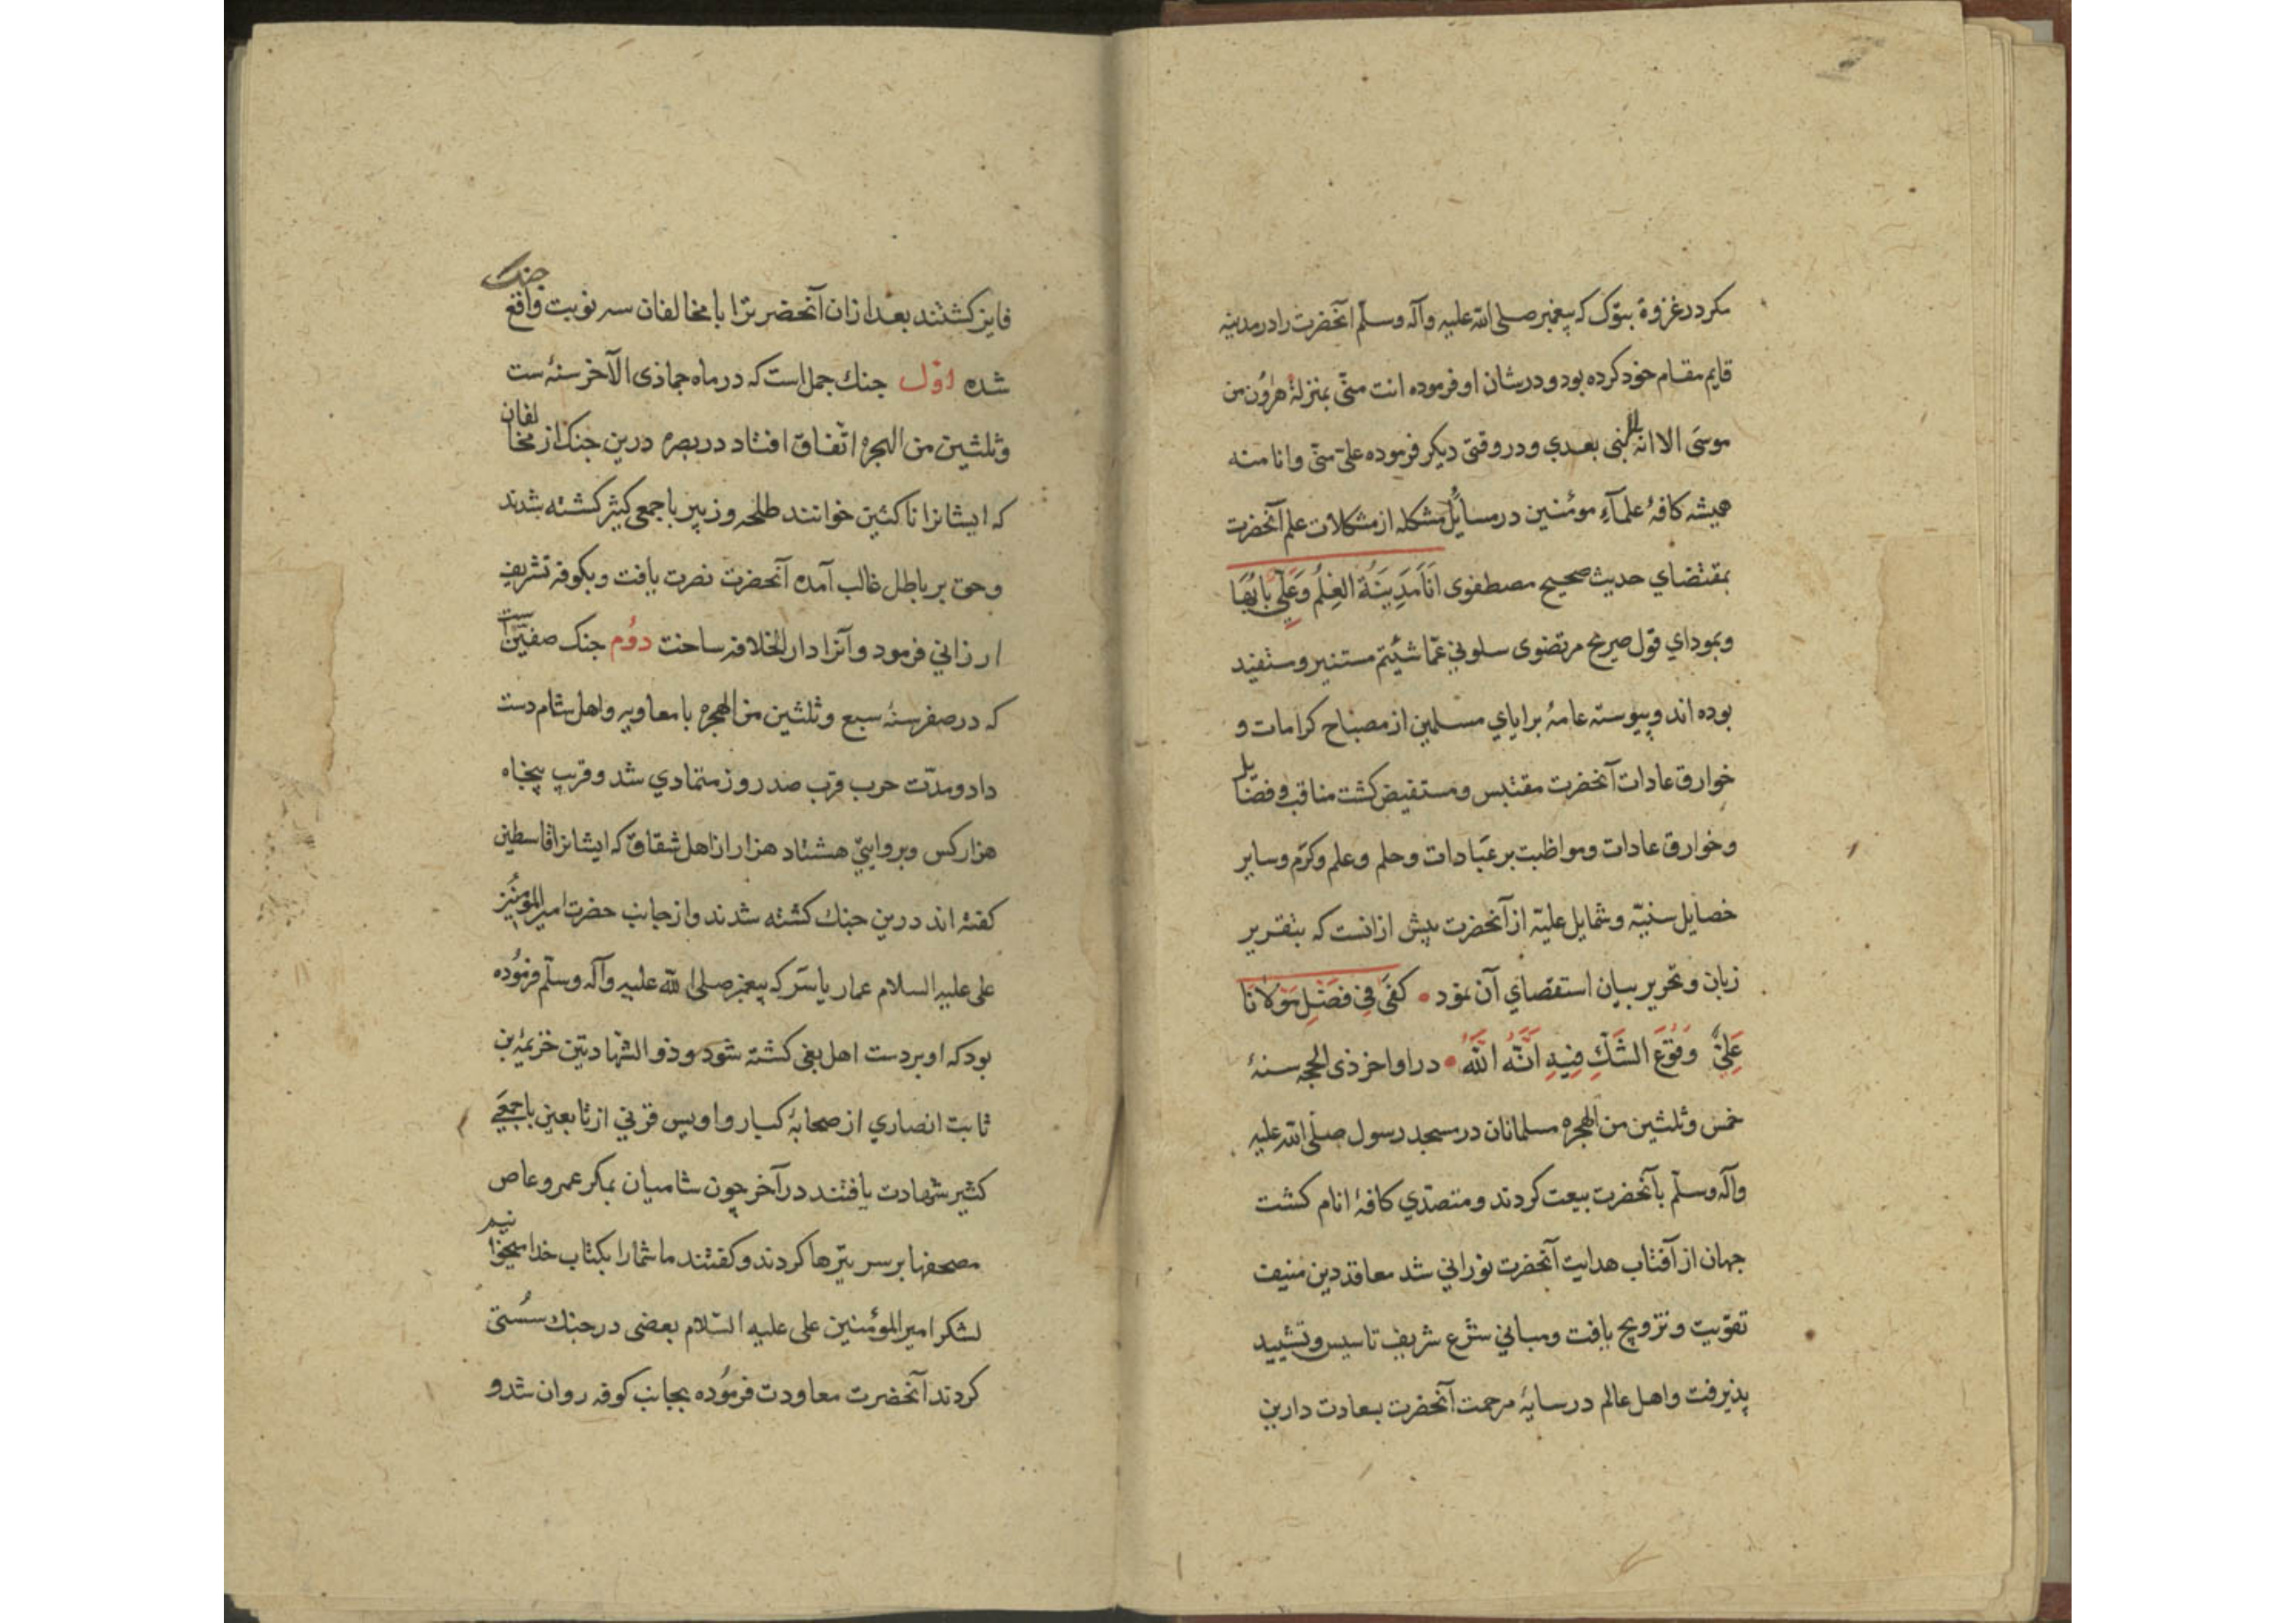 مکر در غزوهٔ تبوک که پیغمبر صلی الله علیه وآله وسلّم آنحضرت را در مدینه
قایم مقام خود کرده بود و در شان او فرموده انت منّی بمنزلة هرون من
موسی الا انه لا نبی بعدي و در وقتی دیکر فرموده علیّ منّی وانا منه
همیشه کافهٔ علمآءِ مومنین در مسایل مشکله از مشکلات علم آنحضرت
بمقتضاي حدیث صحیح مصطفوی اَنَا مَدِیَنَةُ العِلْمُ وَعَلِّي بَابُهَا
وبموداي قول صریح مرتضوی سلوني عمّا شئتم مستنیر و مستفید
بوده اند و پیوسته عامهٔ برایاي مسلمین از مصباح کرامات و
خوارق عادات آنحضرت مقتبس و مستفیض کشت مناقب و فضایل
وخوارق عادات ومواظبت بر عبادات وحلم وعلم وکرم وسایر
خصایل سنیّه وشمایل علیّه از آنحضرت بیش از انست که بتقریر
زبان وتحریر بیان استقصاي آن نمود کَفیَ فِی فَضْلِ مَوْلَانَا
عَلِیٍّ وَقُوُعَ الشَکِّ فِیِهِ اَنَّهُ اللّهُ در اواخر ذی الحجه سنهٔ
خمس وثلثین من الهجره مسلمانان در مسجد رسول صلّی الله علیه
وآله وسلّم بآنحضرت بیعت کردند ومتصدّي کافهٔ انام کشت
جهان از آفتاب هدایت آنحضرت نوراني شد معاقد دین منیف
تقویت وترویج یافت ومباني شرع شریف تاسیس وتشیید
پذیرفت واهل عالم در سایهٔ مرحمت آنحضرت بسعادت دارین
فایز کشتند بعد از ان آنحضرترا با مخالفان سه نوبت جنک واقع
شده اوّل جنك جمل است که در ماه جماذی الآخر سنهٔ ست
وثلثین من الهجره اتّفاق افتاد در بصره درین جنک از مخالفان
که ایشانرا ناکثین خوانند طلحه وزبیر با جمعی کثیر کشته شدند
وحق بر باطل غالب آمده آنحضرت نصرت یافت وبکوفه تشریف
ارزاني فرمود وآنرا دار الخلافه ساخت دوُم جنک صفین است
که در صفر سنهٔ سبع وثلثین من الهجره با معاویه واهل شام دست
داد ومدّت حرب قرب صد روز متمادي شد وقریب پنجاه
هزار کس وبروایتی هشتاد هزار از اهل شقاق که ایشانرا قاسطین
کفتهٔ اند درین جنك کشته شدند واز جانب حضرت امیر المومنین
علی علیه السلام عمار یاسر که پیغمبر صلی الله علیه وآله وسلّم فرمُوده
بود که او بر دست اهل بغی کشته شود وذو الشهادتین خزیمهٔ بن
ثابت انصاري از صحابهٔ کبار واویس قرني از تابعین با جمعی
کثیر شهادت یافتند در آخر چون شامیان بمکر عمرو عاص
مصحفها بر سر نیزها کردند وکفتند ما شما را بکتاب خدا میخوانیم
لشکر امیر المؤمنین علی علیه السّلام بعضی در جنك سُستی
کردند آنحضرت معاودت فرمُوده بجانب کوفه روان شد و